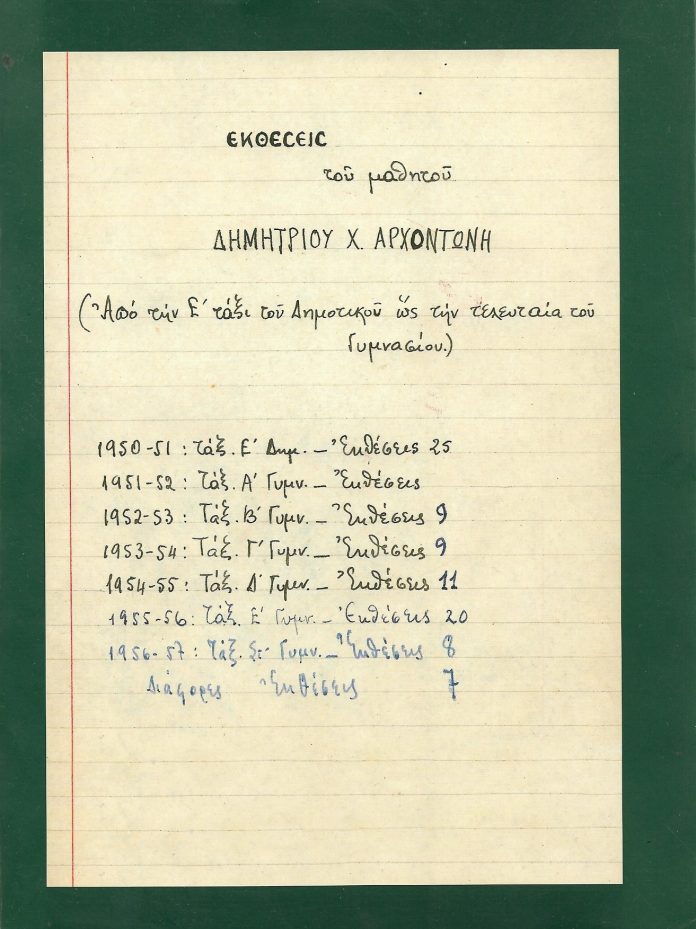 ΕΚΘΕϹΕΙϹ
τοῦ μαθητοῦ
ΔΗΜΗΤΡΙΟΥ Χ. ΑΡΧΟΝΤΩΝΗ
(Ἀπό τήν Ε΄ τάξι τοῦ Δημοτικοῦ ὥς τήν τελευταία τοῦ
Γυμνασίου.)
1950-51 : Τάξ. Ε΄ Δημ. – Ἐκθέσεις 25
1951-52 : Τάξ. Α΄ Γυμν. – Ἐκθέσεις
1952-53 : Τάξ. Β΄ Γυμν. – Ἐκθέσεις 9
1953-54 : Τάξ. Γ΄ Γυμν. – Ἐκθέσεις 9
1954-55 : Τάξ. Δ΄ Γυμν. – Ἐκθέσεις 11
1955-56 : Τάξ. Ε΄ Γυμν. – Ἐκθέσεις 20
1956-57 : Τάξ. Στ΄ Γυμν. – Ἐκθέσεις 8
Διάφορες Ἐκθέσεις 7